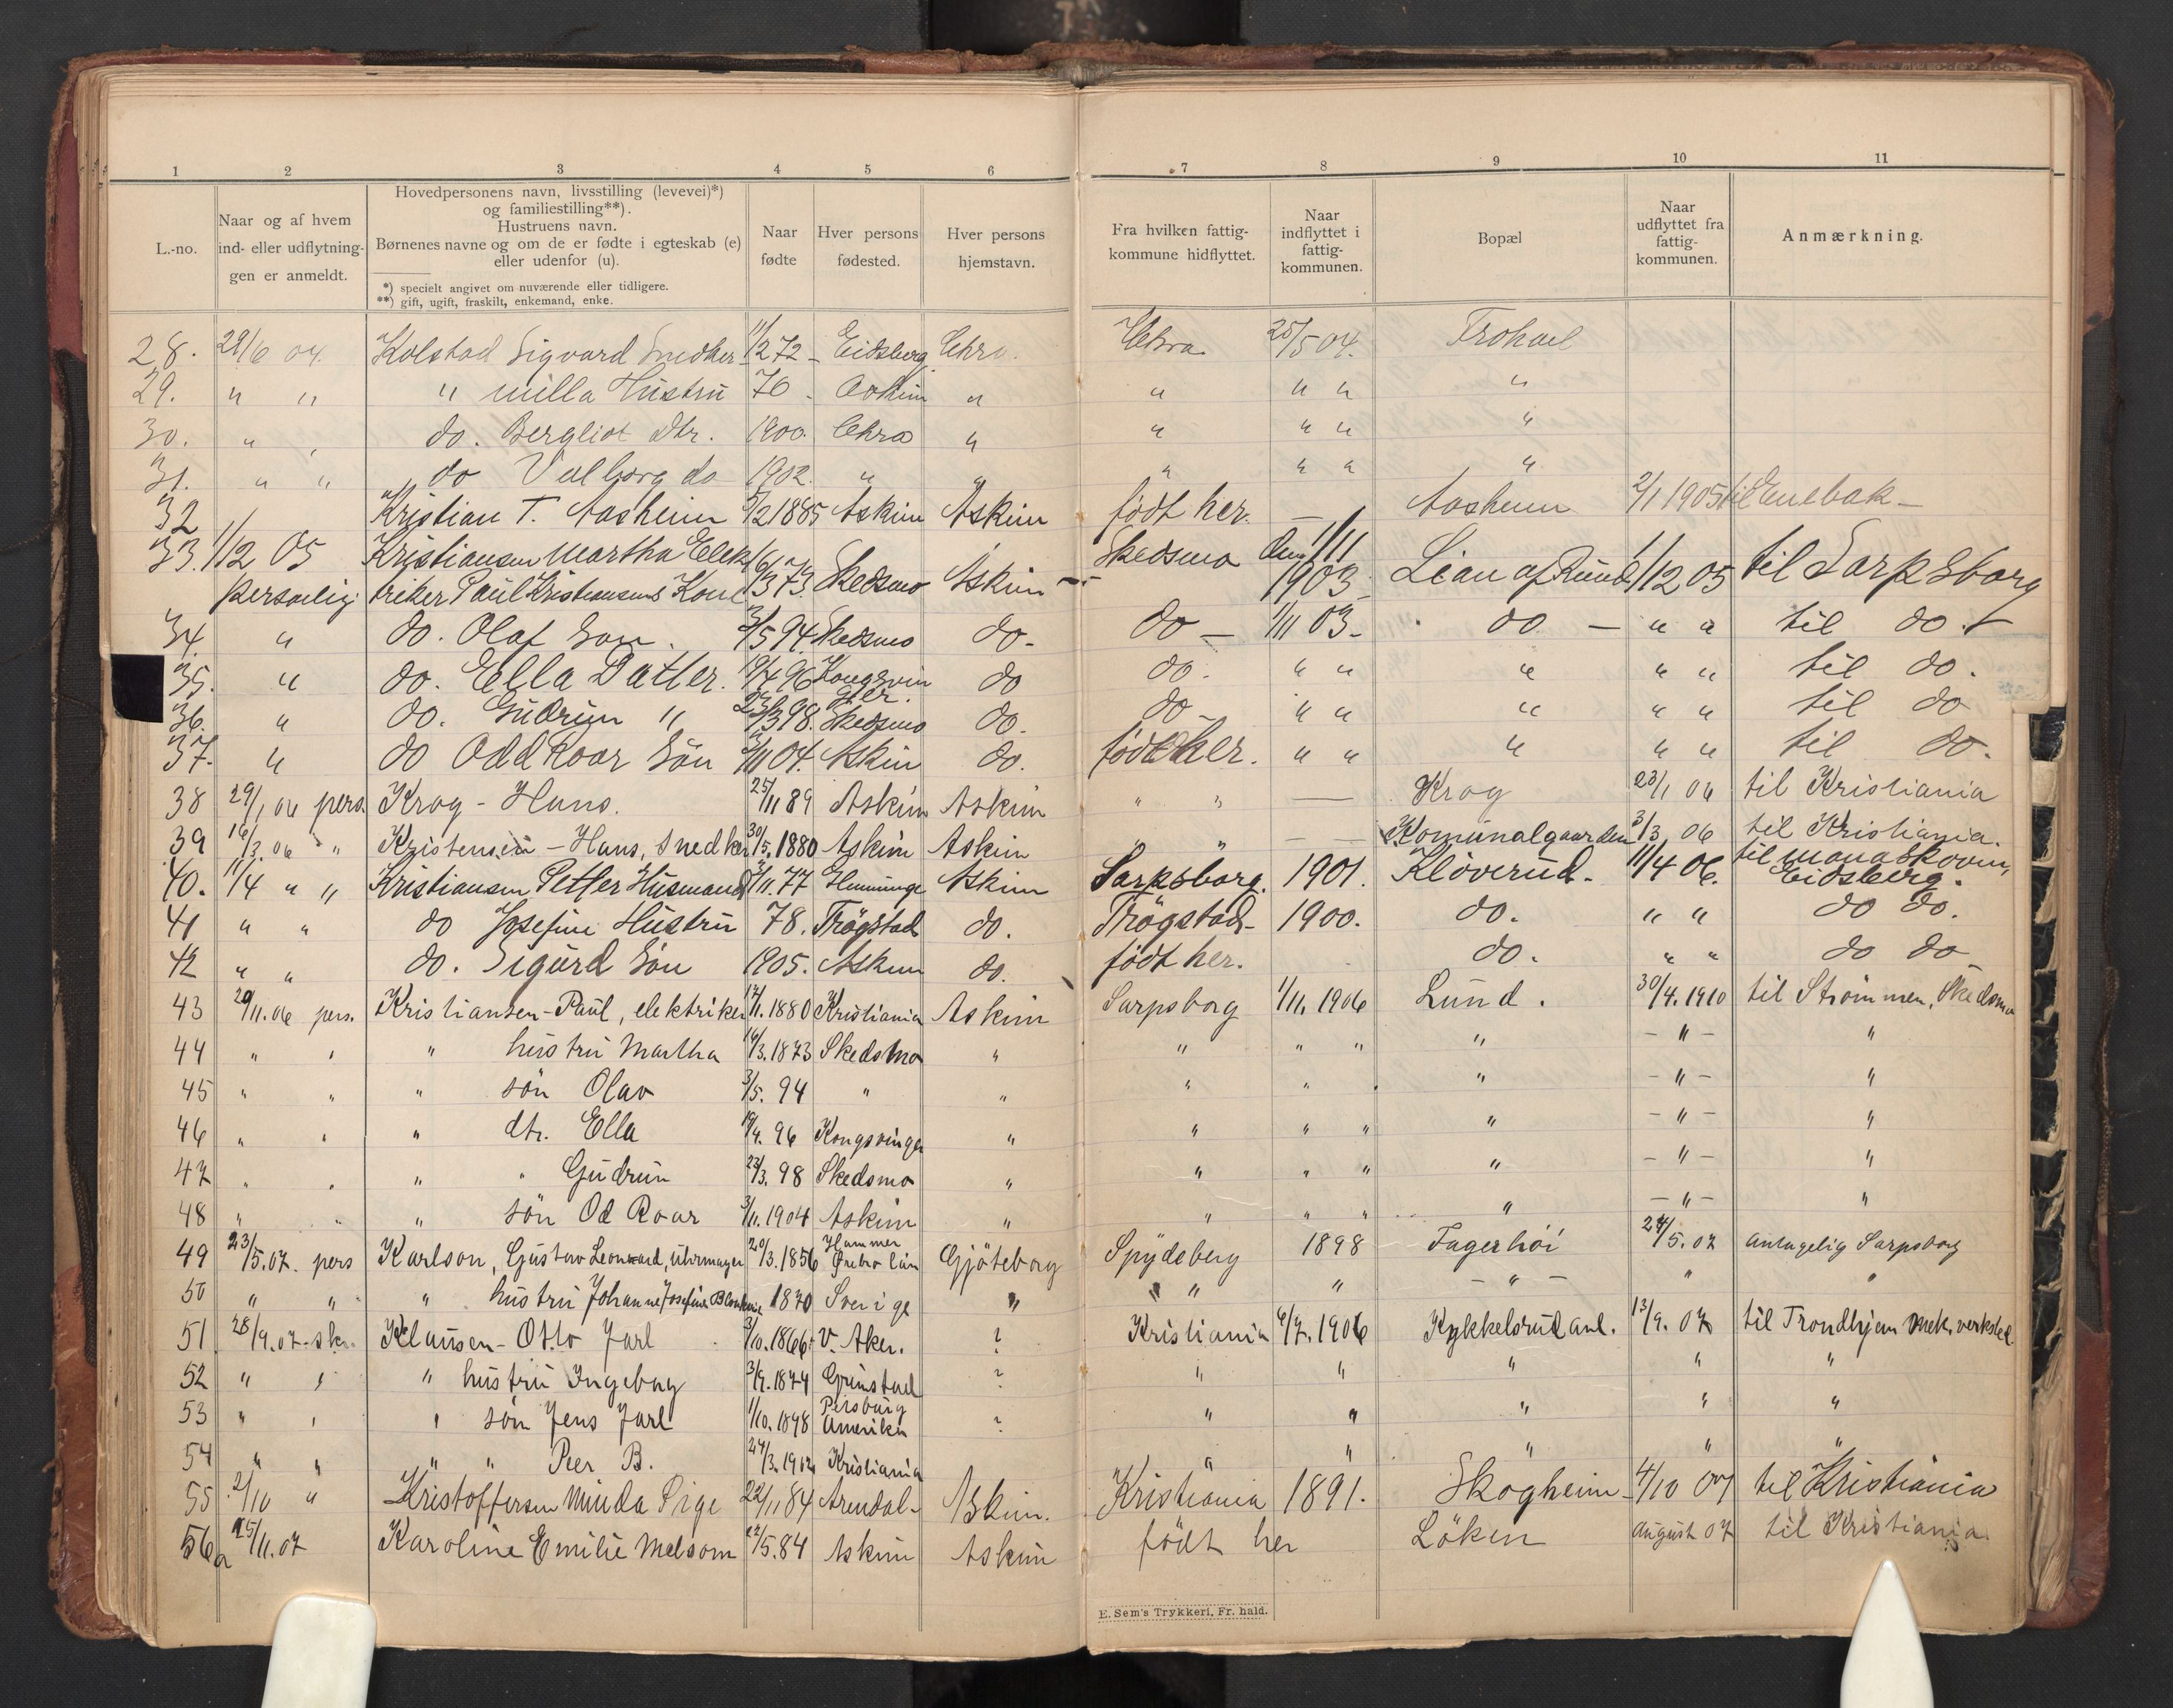 1 2 3 4 5 6 7 8 9 10 11
L.-no.
Naar og af hvem
ind- eller udflytning-
gen er anmeldt.
Hovedpersonens navn, livsstilling (levevei)*)
og familiestilling**).
Hustruens navn.
Børnenes navne og om de er fødte i egteskab (e)
eller udenfor (u).
*) specielt angivet om nuværende eller tidligere.
**) gift, ugift, fraskilt, enkemand, enke.
Naar
fødte
Hver persons
fødested.
Hver persons
hjemstavn.
Fra hvilken fattig-
kommune hidflyttet.
Naar
indflyttet i
fattig-
kommunen.
Bopæl
Naar
udflyttet fra
fattig-
kommunen.
Anmærkning.
28. 29/6 04. Kolstad Sigvard Snedker 11/2 72 Eidsberg Chra. Chra 25/5 04.
29. " " " Milla Hustru 76 Askim " " " " "
30. " " do. Bergliot Dtr. 1900. Chra " " " " "
31. " " do Valborg do 1902. " " " " " "
32 Kristian T. Aasheim 5/2 1885 Askim Askim født her. — Aasheim 2/1 1905 til Enebak –
33. 1/12 05 Kristiansen Martha Elek 16/3 73. Skedsmo Askim Skedsmo 1/11 1903 Lian af Rund 1/12 05 til Sarpsborg
personlig triker Paul Kristiansens Kone
34. " do. Olaf Søn. 3/5 94. Skedsmo do- do — 1/11 03- do — " " til do.
35. " do. Ella Datter. 19/4 96 Kongsvinger. do do. " " " " " til do.
36. " do. Gudrun " 23/3 98. Skedsmo do. do " " " " " til do
37. " do Odd Roar Søn 3/11 04. Askim do. født her. " " " " " til do.
38 29/1 06 pers Krog - Hans. 25/11 89 Askim Askim " " — Krog 23/1 06 til Kristiania
39 16/3. 06 " Kristensen - Hans, Snedker 30/5. 1880 Askim Askim " " — Komunalgaarden 3/3 06 til Kristiania.
40. 11/4 " " Kristiansen Petter Husmand 11. 77 Askim Sarpsborg. 1901. Kløverud. 11/4 06. til Monaskoven, Eidsberg.
41 " " do Josefine Hustru 78. Trøgstad do. Trøgstad- 1900. do. " " do do.
42 " " do. Sigurd Søn 1905. Askim do. født her. do. " " do do
43 29/11. 06 pers. Kristiansen - Paul, elektriker 11. 1880 Kristiania Askim Sarpsborg 1/11. 1906 Lund. 30/4. 1910 til Strømmen, Skedsmo
44 " " " hustru Martha 16/3. 1873 Skedsmo " " " " " - " - "
45 " " " søn Olav 3/5. 94 " " " " " - " - "
46 " " " dtr. Ella 19/4. 96 Kongsvinger " " " " " - " - "
47 " " " " Gudrun 23/3. 98 Skedsmo " " " " " - " - "
48 " " " søn Od Roar 3/11. 1904 Askim " " " " " - " - "
49 23/5. 07. pers Karlson, Gustav Leonard, uhrmager 20/3. 1856 Hammer Ørebro län Gjøteborg Spydeberg 1898 Fagerhøi 24/5. 07 antagelig Sarpsborg
50 " " " hustru Johanne Josefine 1870 Sverige " " " - " - " "
51 28/9. 07 - sk. Klausen - Otto Jarl 3/10. 1866 V. Aker. ? Kristiania 6/7. 1906 Kykkelsrud anl. 13/9. 07 til Trondhjem mek. verksted
52 " " " hustru Ingeborg 3/9. 1874 Grimstad ? " " " " "
53 " " " søn Jens Jarl 1/10. 1898 Amerika ? " " " " "
54 " " " " Peer B. 24/3. 1902 Kristiania " " " " "
55 2/10 " Kristoffersen Minda Pige 22/11 84 Arendal- Askim. Kristiania 1891. Skogheim 4/10 07 til Kristiania
56a 25/11. 07 Karoline Emilie Melsom 22/5. 84 Askim Askim født her Løken August 07 til Kristiania.
E. Sem's Trykkeri, Fr. hald.